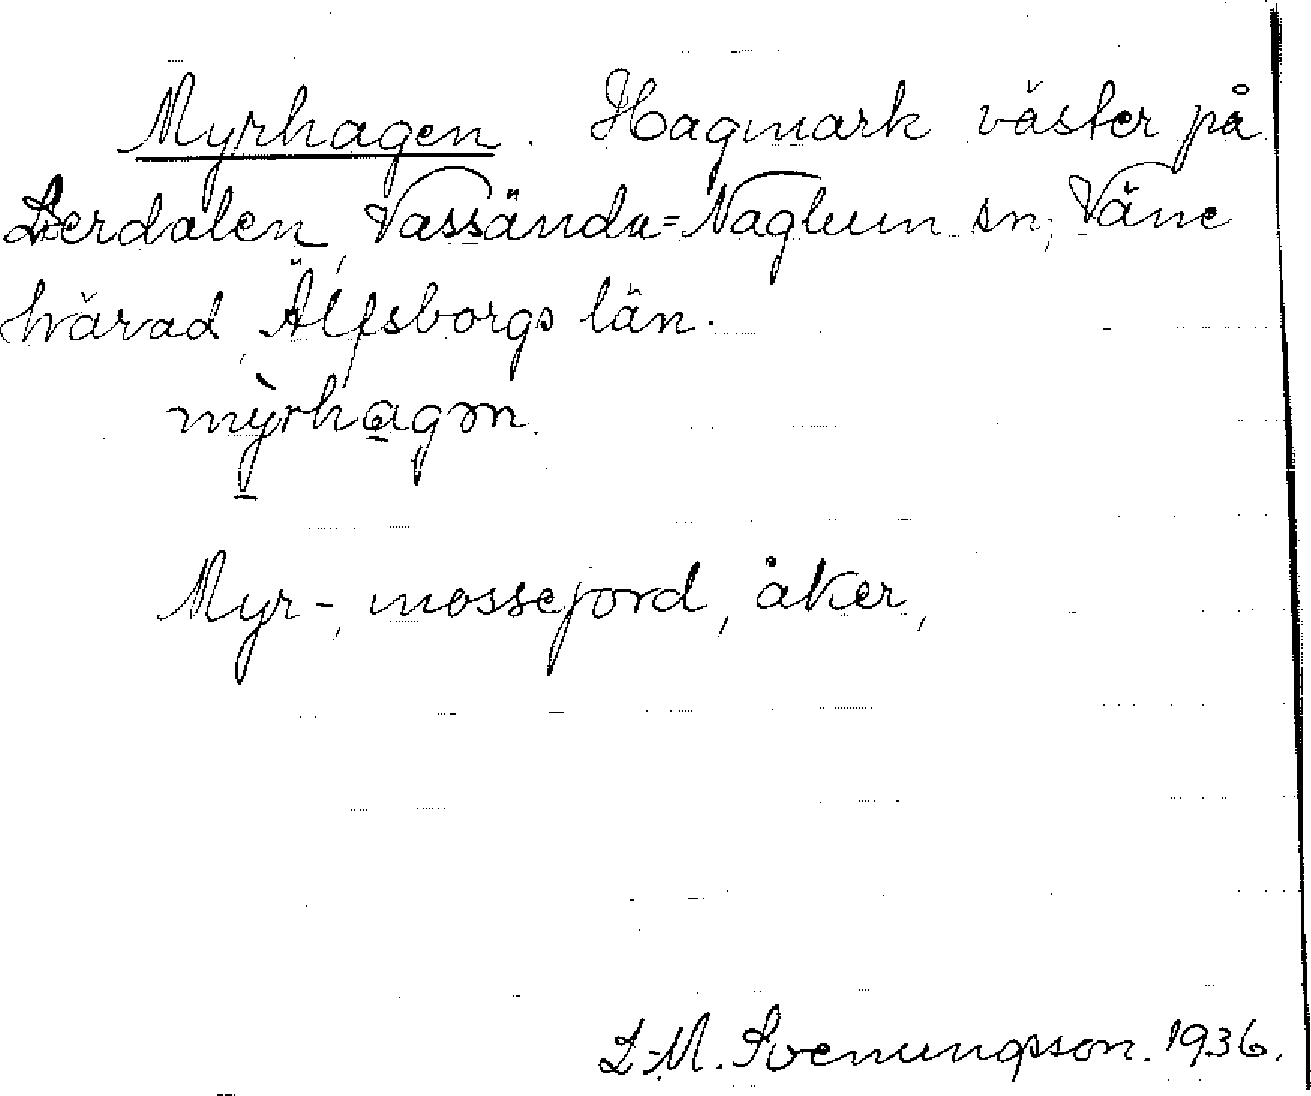 Myrhagen. Hagmark väster på
Lerdalen, Vassända=Naglum sn, Väne
härad, Älfsborgs län.
mỳrhagən.
Myr-, mossejord, åker,
L-M. Svenungsson. 1936.